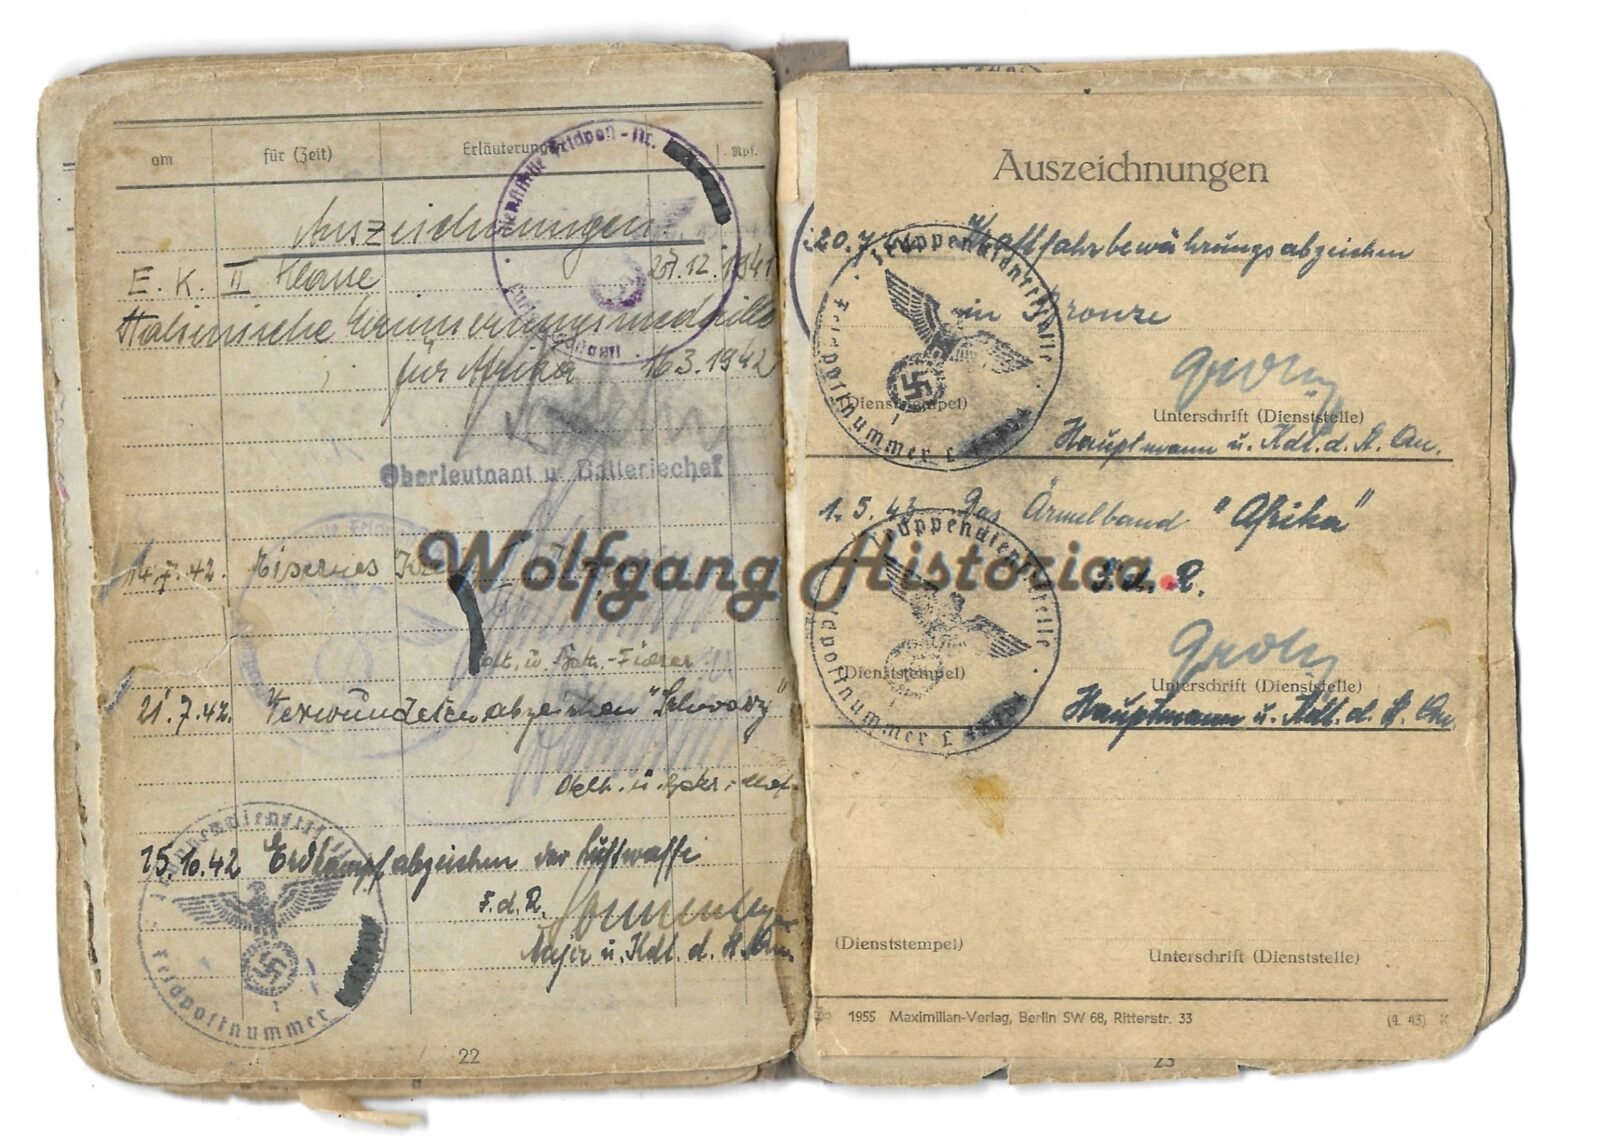 am für (Zeit) Erläuterung Rpf.
Dienststelle Feldpost-Nr.
Luftgaupostamt
Auszeichnungen
E. K. II Klasse 27.12.1941
Italienische Erinnerungsmedaille
für Afrika 16.3.1942
Oberleutnant u. Batteriechef
14.7.42. Eisernes
u. Battr.-Führer
21.7.42. Verwundetenabzeichen "Schwarz"
25.10.42 Erdkampfabzeichen der Luftwaffe
F.d.R.
Major u. Kdt. d.
Truppendienststelle
Feldpostnummer
22
Auszeichnungen
20.7. Kraftfahrbewährungsabzeichen
in Bronze
Truppendienststelle
Feldpostnummer L
(Dienststempel) Unterschrift (Dienststelle)
Hauptmann u. Kdt. d.
1.5.43 Das Ärmelband "Afrika"
F. d. R.
Truppendienststelle
Feldpostnummer L
(Dienststempel) Unterschrift (Dienststelle)
Hauptmann u. Kdt. d.
(Dienststempel) Unterschrift (Dienststelle)
1955 Maximilian-Verlag, Berlin SW 68, Ritterstr. 33 (4. 43) K
23
Wolfgang Historica.